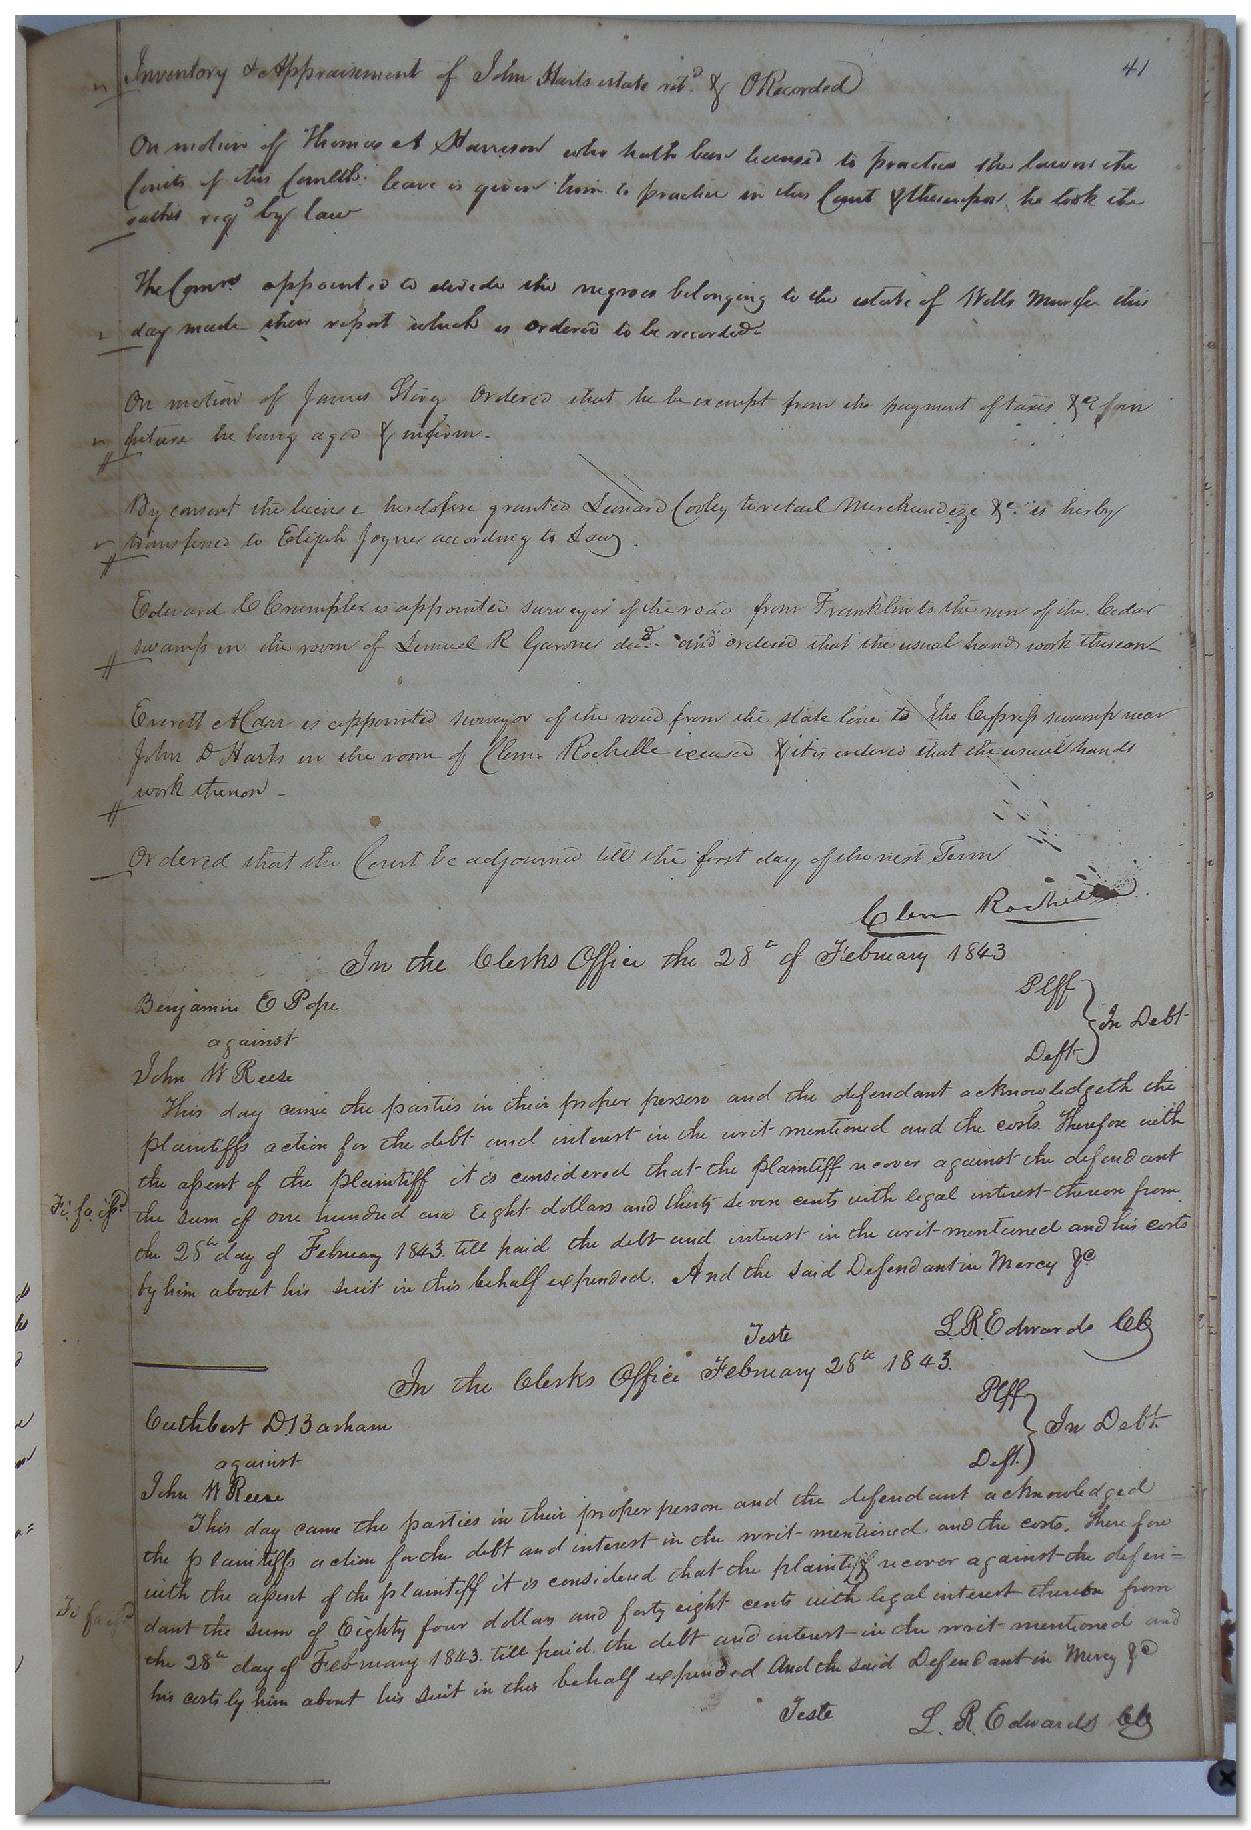 41
Inventory & Appraisement of John Harts estate retd. & ORecorded
On motion of Thomas A Harrison who hath been licensed to practice the law in the
Courts of this Comlth. leave is given him to practice in this Court & thereupon he took the
oaths reqd by law
The Comrs appointed to devide the negroes belonging to the estate of Wells Murfee this
day made their report which is ordered to be recorded
On motion of James Ordered that he be exempt from the payment of taxes &c for
future he being aged & infirm.
By consent the license heretofore granted Leonard Cooley to retail Merchandize &c. is hereby
transferred to Elijah Joyner according to Law.
Edward C Crumpler is appointed surveyor of the road from Franklin to the run of the Cedar
swamp in the room of Lemuel R Garner decd. and ordered that the usual hands work thereon
Everett A Carr is appointed surveyor of the road from the state line to the Cypress swamp near
John D Harts in the room of Clem Rochelle & it is ordered that the usual hands
work thereon -
Ordered that the Court be adjourned till the first day of the next Term
Clem Rochelle
In the Clerks Office the 28th of February 1843
Benjamin E Pope Plff
against In Debt
John W Reese Deft
This day came the parties in their proper person and the defendant acknowledgeth the
plaintiffs action for the debt and interest in the writ mentioned and the costs. Therefore with
the assent of the plaintiff it is considered that the plaintiff recover against the defendant
Fi. fa. issd. the sum of one hundred and Eight dollars and thirty seven cents with legal interest thereon from
the 28th day of February 1843. till paid the debt and interest in the writ mentioned and his costs
by him about his suit in this behalf expended. And the said Defendant in Mercy &c
Teste L. R. Edwards Clk
In the Clerks Office February 28th 1843.
Cuthbert D Barham Plff
against In Debt
John W Reese Deft.
This day came the parties in their proper person and the defendant acknowledged
the plaintiffs action for the debt and interest in the writ mentioned and the costs. Therefore
with the assent of the plaintiff it is considered that the plaintiff recover against the defen=
Fi fa issd dant the sum of Eighty four dollars and forty eight cents with legal interest thereon from
the 28th day of February 1843. till paid. the debt and interest in the writ mentioned and
his costs by him about his suit in this behalf expended And the said Defendant in Mercy &c
Teste L. R. Edwards Clk